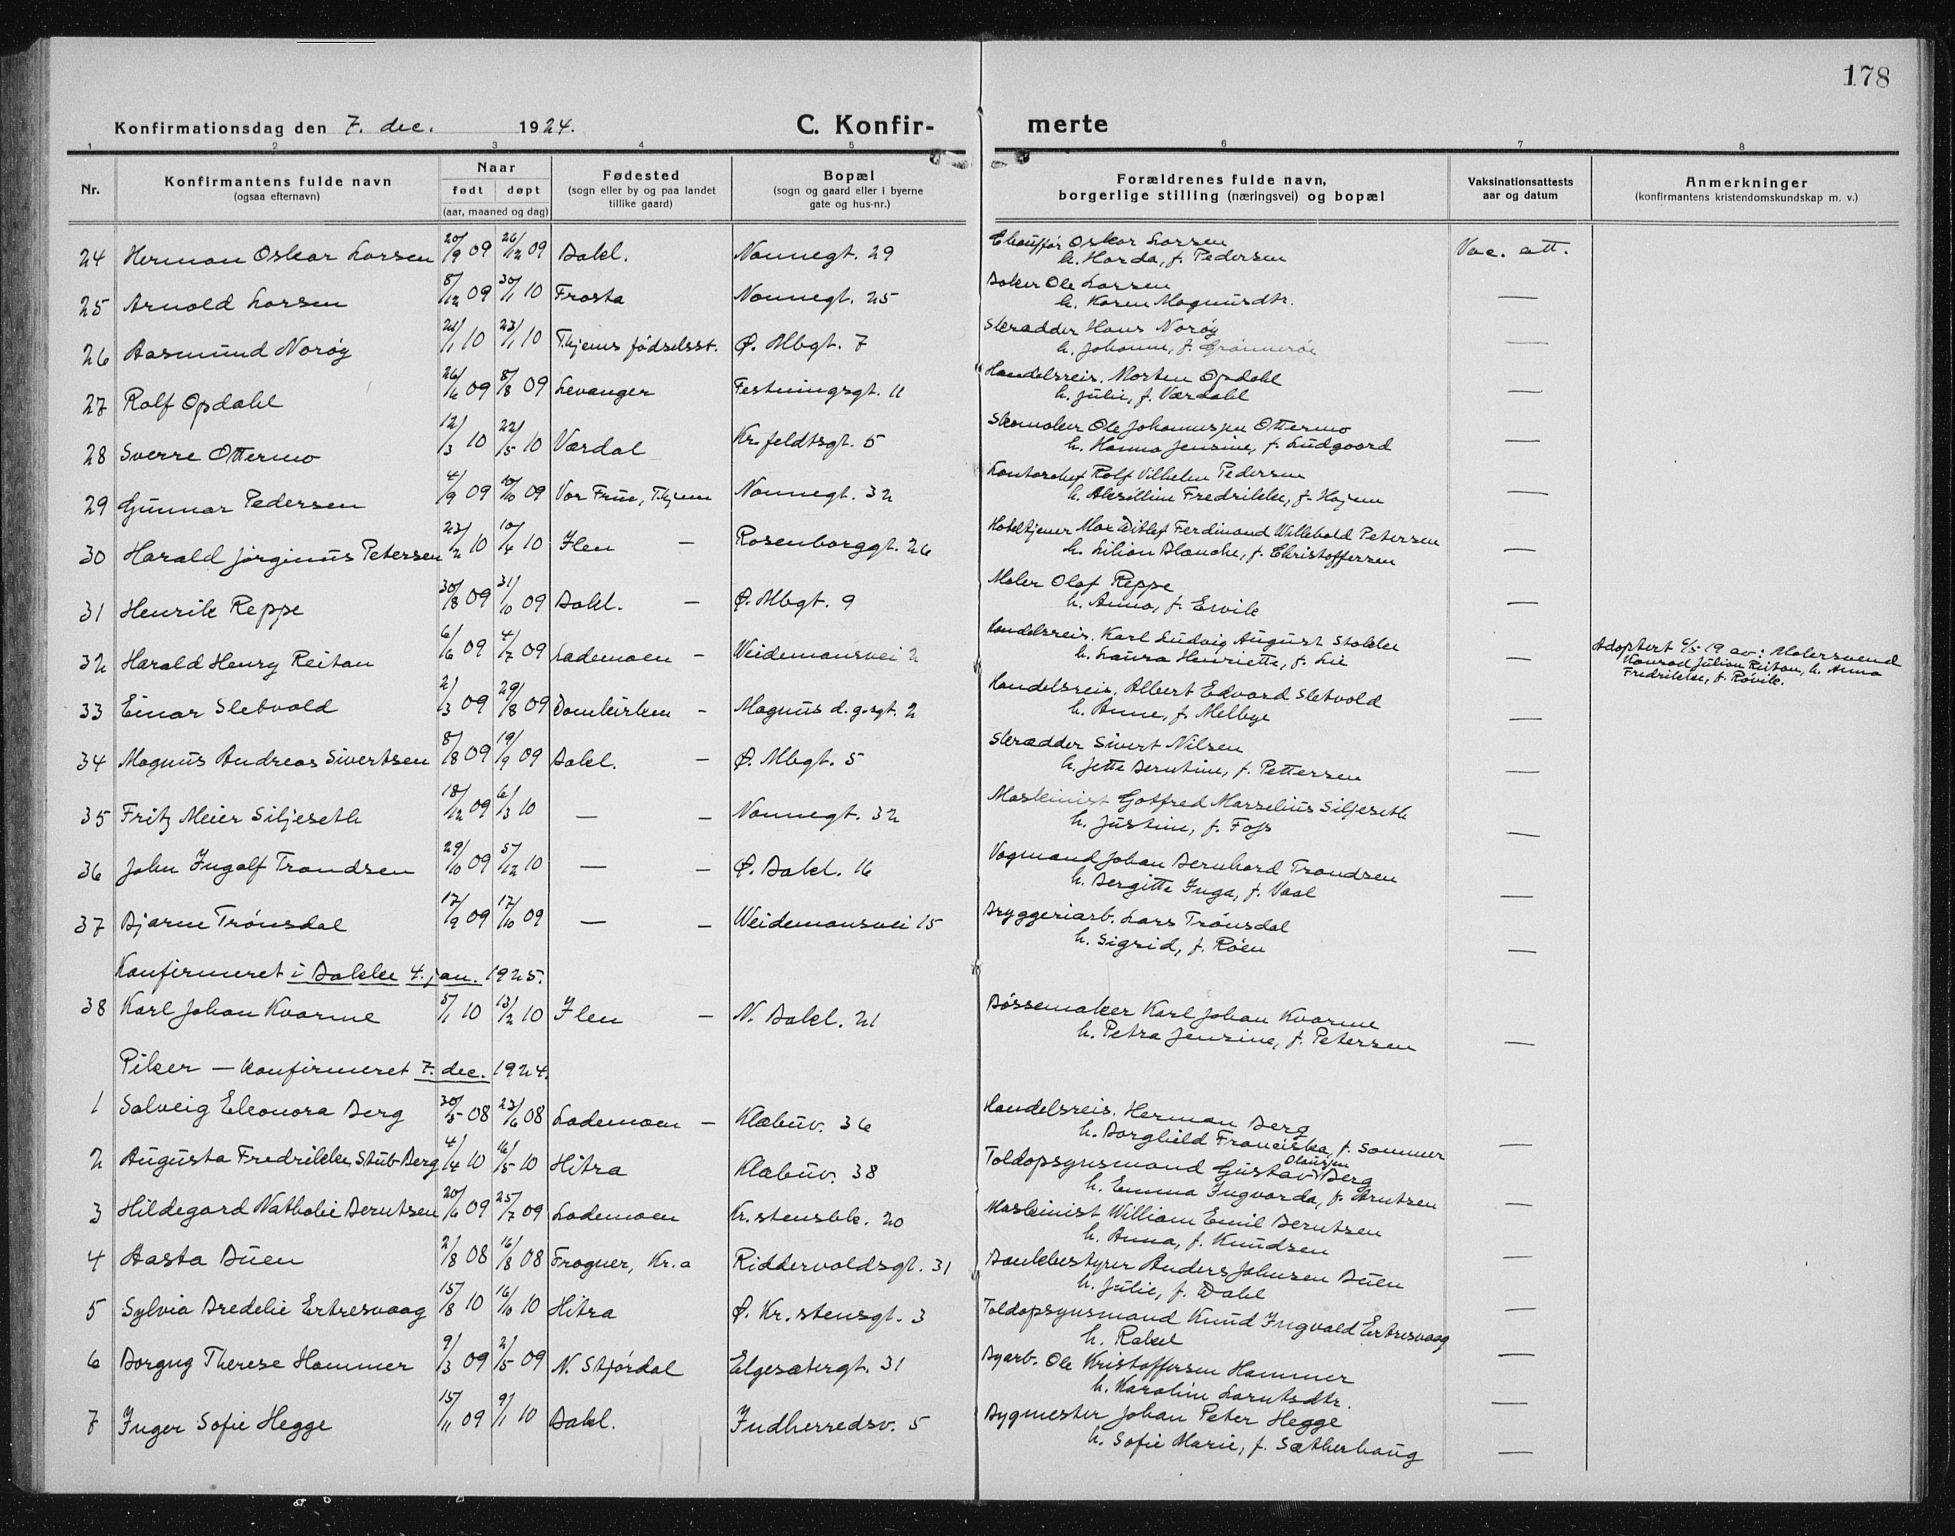 178
Konfirmationsdag den 7. dec. 1924. C. Konfir- merte
1 2 3 4 5 6 7 8
Nr. Konfirmantens fulde navn (ogsaa efternavn) Naar født døpt (aar, maaned og dag) Fødested (sogn eller by og paa landet tillike gaard) Bopæl (sogn og gaard eller i byerne gate og hus-nr.) Forældrenes fulde navn, borgerlige stilling (næringsvei) og bopæl Vaksinationsattests aar og datum Anmerkninger (konfirmantens kristendomskundskap m. v.)
24 Herman Oskar Larsen 20/9 09 26/12 09 Bakl. Nonnegt. 29 Chauffør Oskar Larsen Vac. att.
h. Harda, f. Pedersen
25 Arnold Larsen 8/12 09 30/1 10 Frosta Nonnegt. 25 Baker Ole Larsen —
h. Karen Magnusdtr.
26 Aasmund Norøy 21/1 10 23/1 10 T.hjems fødselsst. Ø. Mbgt. 7 Skrædder Hans Norøy —
h. Johanne, f. Grønnerøe
27 Rolf Opdahl 26/6 09 8/8 09 Levanger Festningsgt. 11 Handelsreis. Morten Opdahl —
h. Julie, f. Værdahl
28 Sverre Ottermo 12/3 10 22/5 10 Værdal Kr. feldtsgt. 5 Skomaker Ole Johannesen Ottermo —
h. Hanna Jensine, f. Ludgaard
29 Gunnar Pedersen 4/9 09 10/10 09 Vor Frue, T.hjem Nonnegt. 32 Kontorchef Rolf Vilhelm Pedersen —
h. Fredrikke, f. Hojem
30 Harald Jørginus Petersen 23/2 10 10/4 10 Ilen — Rosenborggt. 26 Hoteltjener Max Ditlef Ferdinand Willebald Petersen —
h. Lilian Blanche, f. Christoffersen
31 Henrik Reppe 30/8 09 31/10 09 Bakl. — Ø. Mbgt. 9 Maler Olaf Reppe —
h. Anna, f. Ervik
32 Harald Henry Reitan 6/6 09 4/7 09 Lademoen — Weidemansvei 2 Handelsreis. Karl Ludvig August Stokke — Adoptert 6/5 19 av: Malersvend
h. Laura Henriette, f. Lie Konrad Julian Reitan, h. Anna
Fredrikke, f. Røvik.
33 Einar Sletvold 2/3 09 29/8 09 Domkirken — Magnus d. g.sgt. 2 Handelsreis. Albert Edvard Sletvold —
h. Anne, f. Melbye
34 Magnus Andreas Sivertsen 8/8 09 19/9 09 Bakl. — Ø. Mbgt. 5 Skrædder Sivert Nilsen —
h. Jette Berntine, f. Pettersen
35 Fritz Meier Siljeseth 18/12 09 6/3 10 — — Nonnegt. 32 Maskinist Gotfred Marselius Siljeseth —
h. Justine, f. Foss
36 John Ingolf Trondsen 29/10 09 5/12 10 — — Ø. Bakl. 16 Vogmand Johan Bernhard Trondsen —
h. Bergitte Inga, f. Vaal
37 Bjarne Trønsdal 17/9 09 17/10 09 — — Weidemansvei 15 Bryggeriarb. Lars Trønsdal —
h. Sigrid, f. Røen
Konfirmeret i Bakke 4. jan. 1925.
38 Karl Johan Kvarme 5/1 10 13/2 10 Ilen — N. Bakl. 21 Børssemaker Karl Johan Kvarme —
h. Petra Jensine, f. Petersen
Piker — Konfirmeret 7. dec. 1924.
1 Solveig Eleonora Berg 30/5 08 23/6 08 Lademoen — Klæbuv. 36 Handelsreis. Herman Berg —
h. Borghild Franciska, f. Sommer
2 Augusta Fredrikke Stub Berg 4/4 10 16/5 10 Hitra Klæbuv. 38 Toldopsynsmand Gustav Olausen Berg —
h. Emma Ingvarda, f. Arntsen
3 Hildegard Nathalie Berntsen 20/6 09 25/7 09 Lademoen Kr. stensbk. 20 Maskinist William Emil Berntsen —
h. Anna, f. Knudsen
4 Aasta Buen 2/8 08 16/8 08 Frogner, Kr.a Riddervoldsgt. 31 Bankbestyrer Anders Johnsen Buen —
h. Julie, f. Dahl
5 Sylvia Bredelie Ertresvaag 15/8 10 16/10 10 Hitra Ø. Kr. stensgt. 3 Toldopsynsmand Knud Ingvald Ertresvaag —
h. Rakel
6 Borgny Therese Hammer 9/3 09 2/5 09 N. Stjørdal Elgesætergt. 31 Byarb. Ole Kristoffersen Hammer —
h. Karoline Larntsdtr.
7 Inger Sofie Hegge 15/11 09 9/1 10 Bakl. Indherredsv. 5 Bygmester Johan Peter Hegge —
h. Sofie Marie, f. Sætherhaug